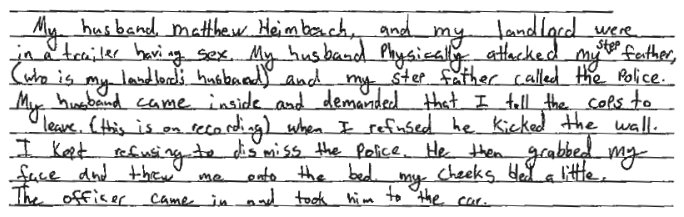 My husband, matthew Heimbach, and my landlord were
in a trailer having sex. My husband Physically attacked my step father,
(who is my landlord's husband) and my step father called the Police.
My husband came inside and demanded that I tell the cops to
leave. (this is on recording) when I refused he kicked the wall.
I kept refusing to dismiss the Police. He then grabbed my
face and threw me onto the bed my cheeks bled a little.
The officer came in and took him to the car.